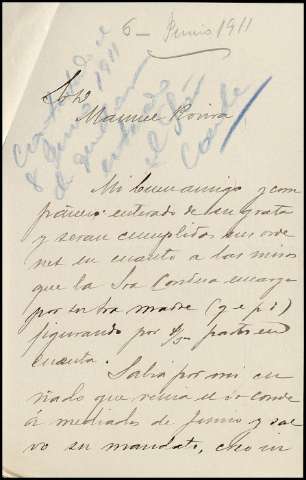 6 - Junio 1911
Contestada el
8 Junio 1911
el Sr
Conde
Sor D
Manuel Rovira
Mi buen amigo y com
pañero: enterado de su grata
y seran cumplidas sus orde
nes en cuanto a las misas
que la Sra Condesa encarga
por su Sra madre (q e p d)
figurando por 1/3 parte en
cuenta.
Sabia por mi cu
ñado que venia el Sr Conde
á mediados de Junio y sal
vo su mandato, creo un